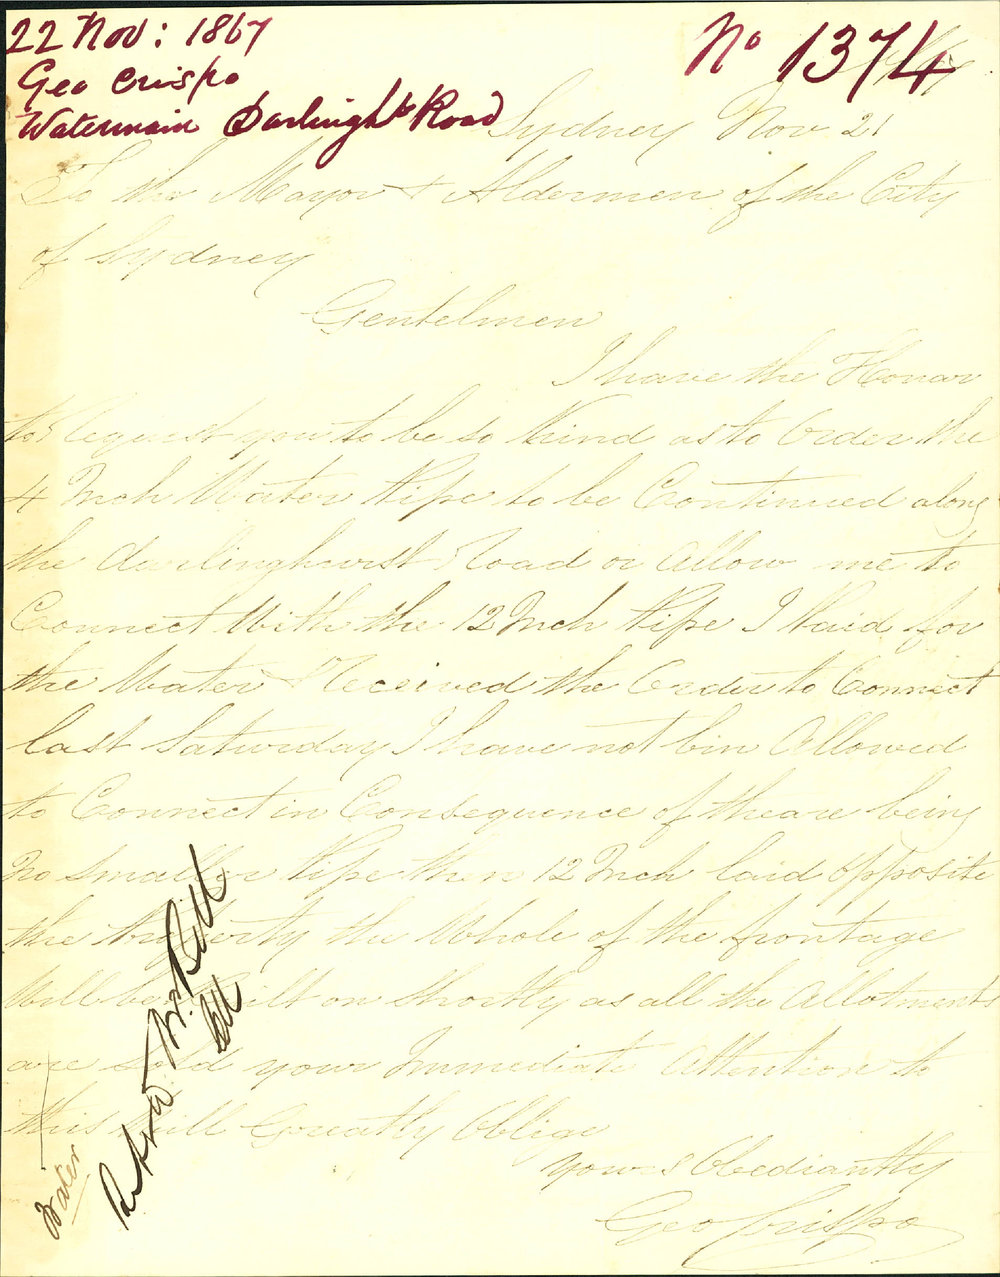 22 Nov: 1867
Geo Crispo
Watermain Darlinght Road
No 1374
Sydney Nov 21
To the Mayor & Aldermen of the City
of Sydney
Gentelmen
I have the Honour
to Request you to be so Kind as to Order the
4 Inch Water Pipe to be Continued along
the darlinghurst Road or Allow me to
Connect With the 12 Inch Pipe I Paid for
the Water & Received the Order to Connect
last Saturday I have not bin Allowed
to Connect in Consequence of theare being
No Smaller Pipe then 12 Inch laid opposite
the Property the Whole of the frontage
Will be Built on Shortly as all the Allotments
are sold your Immediate Attention to
this will Greatly Oblige
yours Obediantly
Geo Crispo
Water
Mr Bell